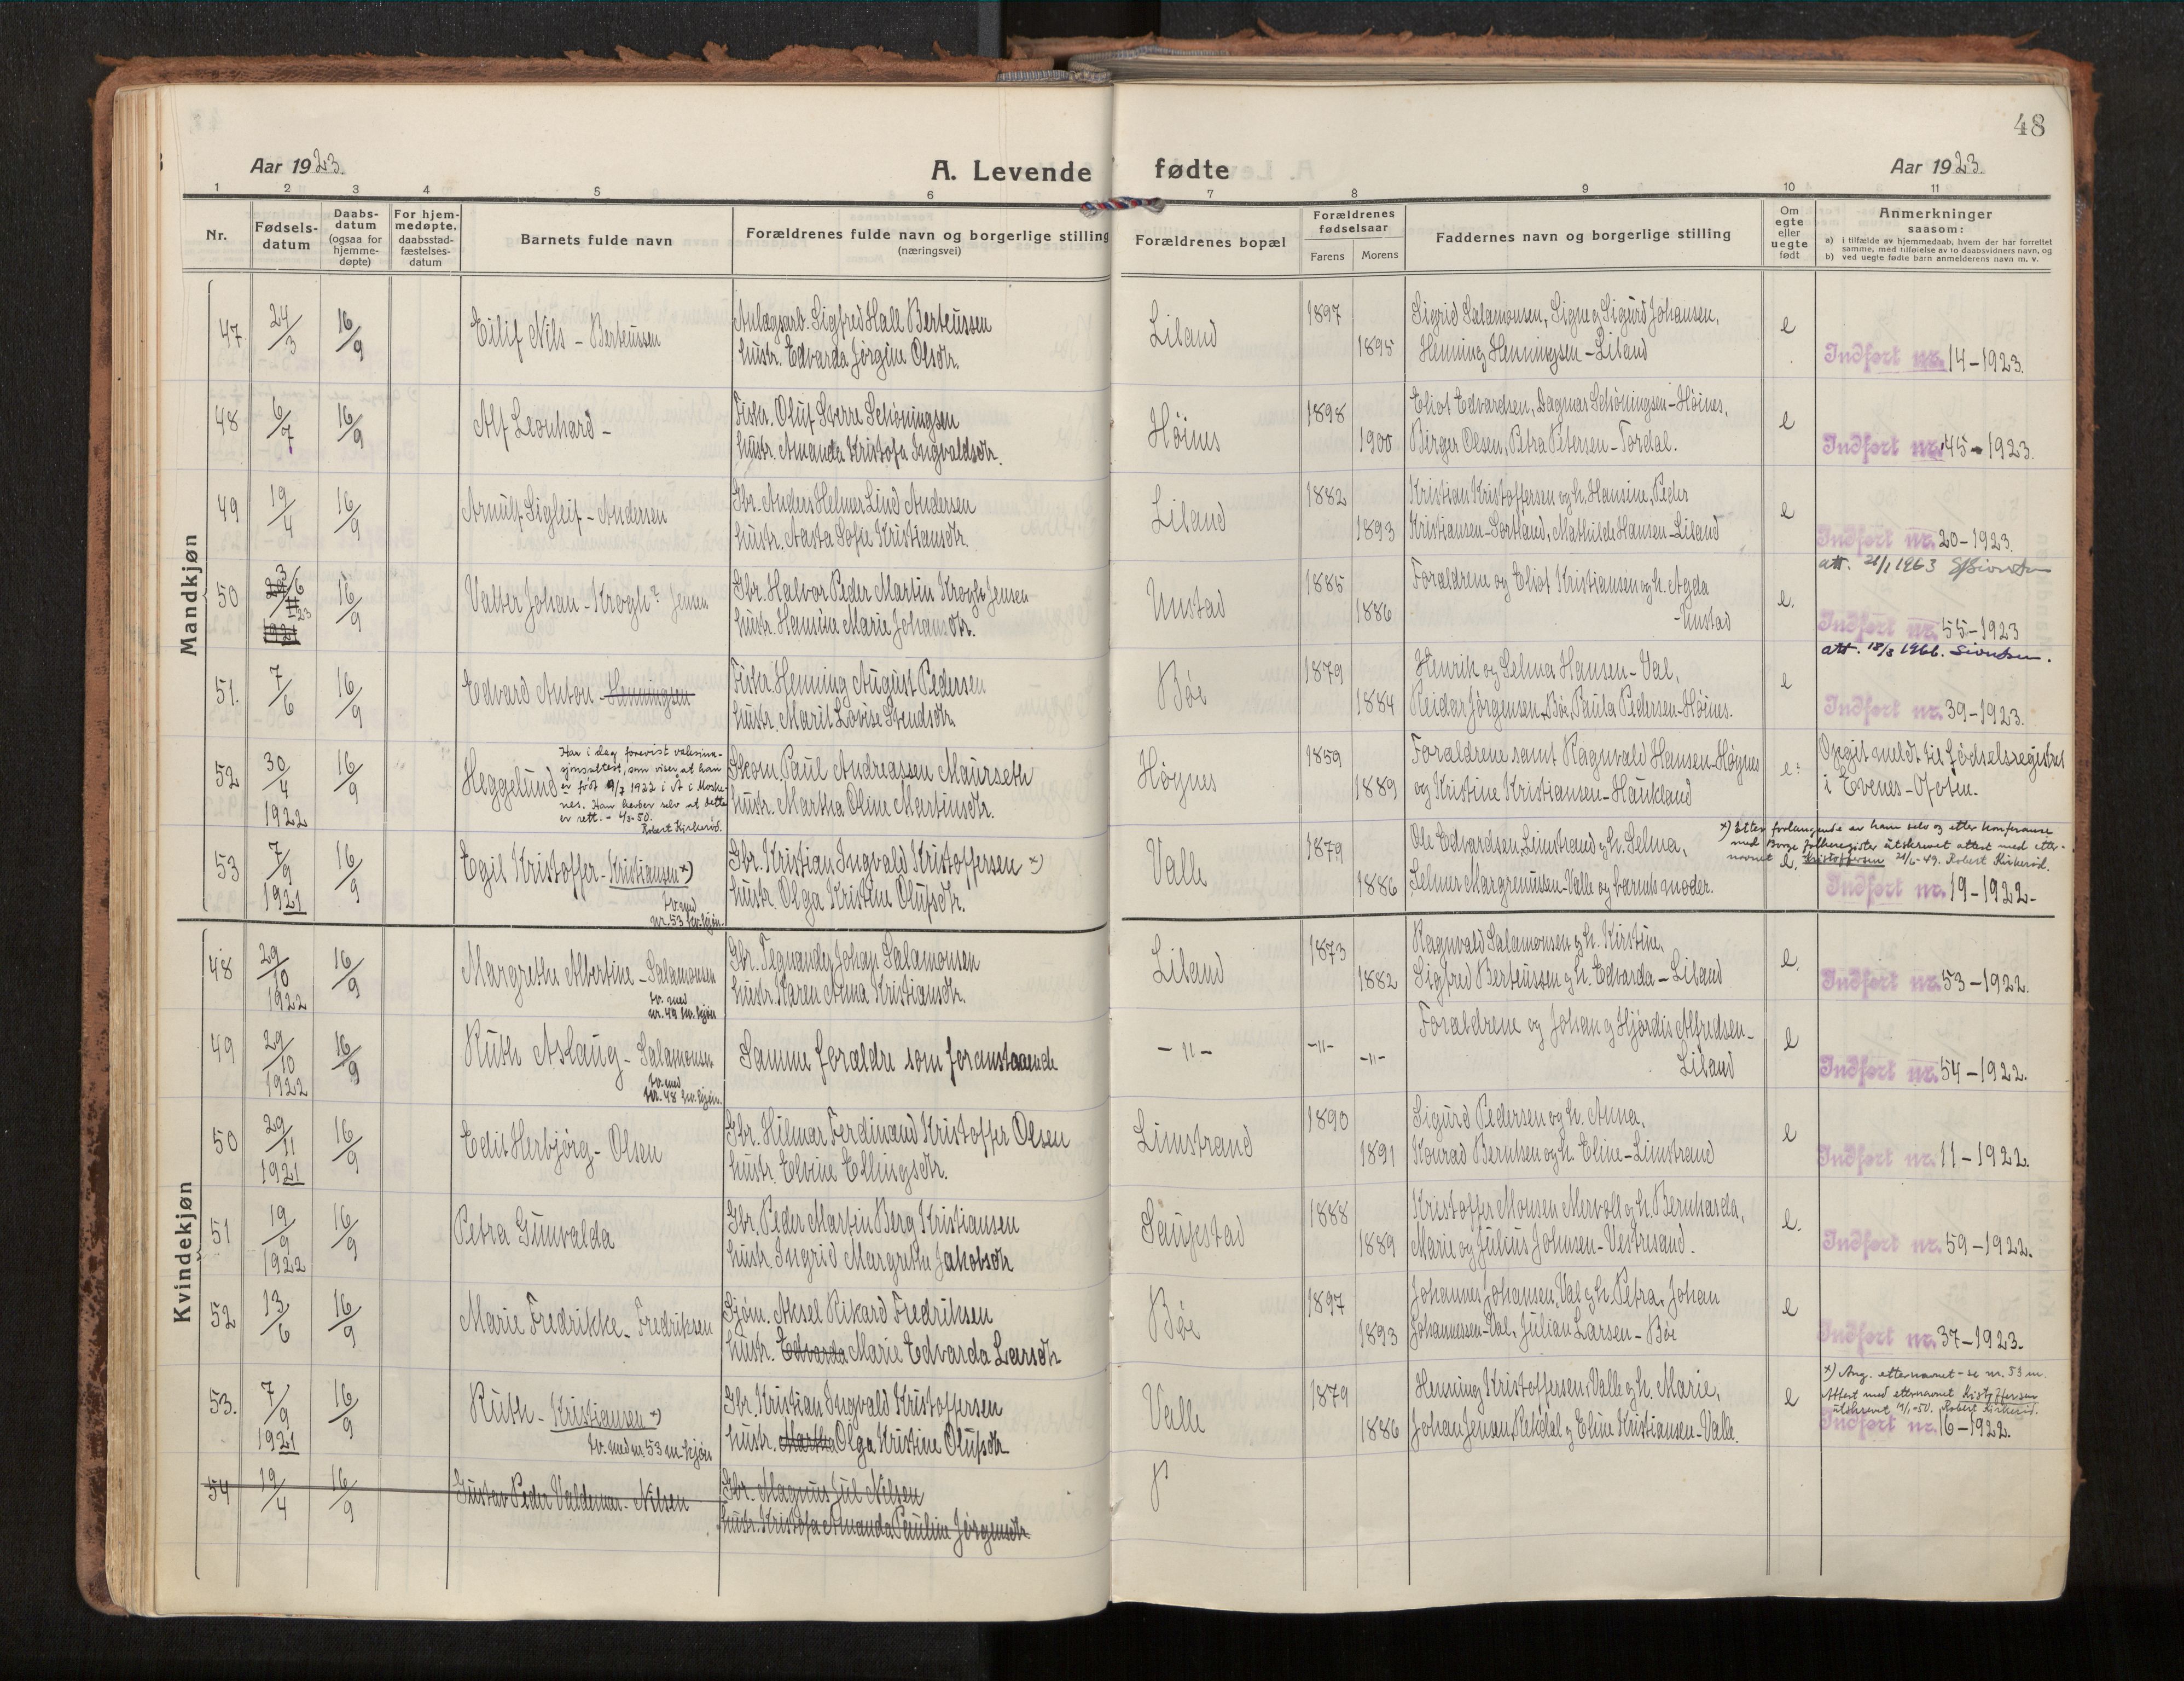 48
Aar 1923.
A. Levende fødte
Aar 1923.
1 2 3 4 5 6 7 8 9 10 11
Nr.
Fødsels-
datum
Daabs-
datum
(ogsaa for
hjemme-
døpte)
For hjem-
medøpte.
daabsstad-
fæstelses-
datum
Barnets fulde navn
Forældrenes fulde navn og borgerlige stilling
(næringsvei)
Forældrenes bopæl
Forældrenes
fødselsaar
Farens Morens
Faddernes navn og borgerlige stilling
Om
egte
eller
uegte
født
Anmerkninger
saasom:
a) i tilfælde av hjemmedaab, hvem der har forrettet
samme, med tilføielse av to daabsvidners navn, og
b) ved uegte fødte barn anmelderens navn m. v.
Mandkjøn
47 24/3 16/9 Eilif Nils - Berteussen
Anlægsarb. Sigfred Hall Berteussen
hustr. Edvarda Jørgine Olsdtr.
Liland 1897 1895
Sigrid Salamonsen, Signe og Sigurd Johansen,
Henning Henningsen - Liland
e
Indført nr. 14-1923.
48 6/7 16/9 Alf Leonhard -
Fisker. Oluf Sverre Schöningsen
hustr. Amanda Kristofa Ingvaldsdtr.
Höines 1898 1900
Eliot Edvardsen, Dagmar Schöningsen - Höines,
Birger Olsen, Petra Petersen - Tordal.
e
Indført nr. 45-1923.
49 19/4 16/9 Arnulf Sigleif - Andersen
Gbr. Anders Helmer Lind Andersen
hustr. Aasta Sofie Kristiansdtr.
Liland 1882 1893
Kristian Kristoffersen og h. Hansine, Peder
Kristiansen - Sortland, Mathilde Hansen - Liland
e
Indført nr. 20-1923.
att. 21/1 1963
50 23/6 23 1921 16/9 Valter Johan - Krogh? Jensen
Gbr. Halvor Peder Martin Krogh Jensen
hustr. Hansine Marie Johansdtr.
Unstad 1885 1886
Forældrene og Eliot Kristiansen og h. Agda
- Unstad
e.
Indført nr. 55-1923
att. 18/8 1966. Sivertsen.
51. 7/6 16/9 Edvard Anton - Henningsen
Fisker Henning August Pedersen
hustr. Marit Lovise Svendsdtr.
Böe 1879 1884
Henrik og Selma Hansen - Val,
Reidar Jørgensen - Böe, Paula Pedersen - Höines.
e
Indført nr. 39-1923.
52 30/4 1922 16/9 Heggelund
Har i dag forevist vaksina-
sjonsattest, som viser at han
er født 9/7 1922 i Å i Moske-
nes. Han hevder selv at dette
er rett. - 4/3-50.
Robert Kirkerød.
Skom. Paul Andreassen Maurseth
hustr. Martha Oline Martinsdtr.
Höynes 1859 1889
Forældrene samt Ragnvald Hansen - Høynes
og Kristine Kristiansen - Haukland
e
Opgit meldt til fødselsregistret
i Evenes - Ofoten.
53 7/9 1921 16/9 Egil Kristoffer - Kristiansen x)
Tv. med
nr. 53 kv. kjøn.
Gbr. Kristian Ingvald Kristoffersen x)
hustr. Olga Kristine Olufsdtr.
Valle 1879 1886
Ole Edvardsen, Limstrand og h. Selma,
Selmer Margrenussen - Valle og barnets moder.
e.
x) Etter forlangende av ham selv og etter konferanse
med Borge folkeregister utskrevet attest med etter-
navnet Kristoffersen 21/6-49. Robert Kirkerød.
Indført nr. 19-1922-
Kvindekjøn
48 29/10 1922 16/9 Margrethe Albertine - Salamonsen
tv. med
nr. 49 kv. kjøn
Gbr. Tegnander Johan Salamonsen
hustr. Karen Anna Kristiansdtr.
Liland 1873 1882
Ragnvald Salamonsen og h. Kirstine,
Sigfred Berteussen og h. Edvarda - Liland
e.
Indført nr. 53-1922.
49 29/10 1922 16/9 Ruth Aslaug - Salamonsen
tv. med
nr. 48 kv. kjøn.
Samme forældre som foranstaaende
- " - -"- -"-
Forældrene og Johan og Hjördis Alfredsen -
Liland
e
Indført nr. 54-1922.
50 29/11 1921 16/9 Edit Herbjörg - Olsen
Gbr. Hilmar Ferdinand Kristoffer Olsen
hustr. Elvine Ellingsdtr.
Limstrand 1890 1891
Sigurd Pedersen og h. Anna,
Konrad Berntsen og h. Eline - Limstrand
e
Indført nr. 11-1922.
51 19/9 1922 16/9 Petra Gunvalda
Gbr. Peder Martin Berg Kristiansen
hustr. Ingrid Margrethe Jakobsdtr
Saupstad 1888 1889
Kristoffer Monsen Mervoll og h. Bernharda,
Marie og Julius Johnsen - Vestresand.
e.
Indført nr. 59-1922.
52 13/6 16/9 Marie Fredrikke - Fredriksen
Sjøm. Aksel Rikard Fredriksen
hustr. Edvarda Marie Edvarda Larsdtr
Böe 1897 1893
Johannes Johansen, Val og h. Petra, Johan
Johannessen - Val, Julian Larsen - Böe
e
Indført nr. 37-1923.
53. 7/9 1921 16/9 Ruth - Kristiansen x)
tv. med nr. 53 m-kjøn
Gbr. Kristian Ingvald Kristoffersen
hustr. Martha Olga Kristine Olufsdtr
Valle 1879 1886
Henning Kristoffersen, Valle og h. Marie,
Johan Jensen, Rekdal og Eline Kristiansen - Valle.
e
x) Ang. etternavnet - se nr. 53 m.
Attest med etternavnet Kristoffersen
utskrevet 19/1-50. Robert Kirkerød.
Indført nr. 16-1922.
54 19/4 16/9 Gustav Peder Valdemar - Nilsen
Gbr. Magnus Jul Nilsen
hustr. Kristofa Amanda Pauline Jörgensdtr.